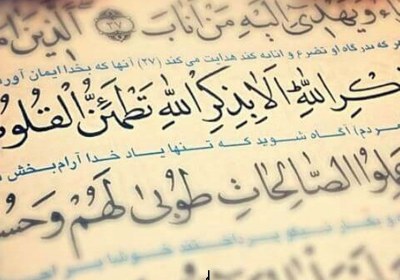 ـاءُ وَيَهْدِي إِلَيْهِ مَنْ أَنَابَ ﴿٢٧﴾ الَّذِينَ آمَـ
هر که بدرگاه او تضرع و انابه کند هدایت می کند (۲۷) آنها که بخدا ایمان آورد
ـكْرِ اللَّهِ أَلَا بِذِكْرِ اللَّهِ تَطْمَئِنُّ الْقُلُو
مردم) آگاه شوید که تنها یاد خدا آرام بخش
ـمِلُوا الصَّالِحَاتِ طُوبَىٰ لَهُمْ وَحُسْـ